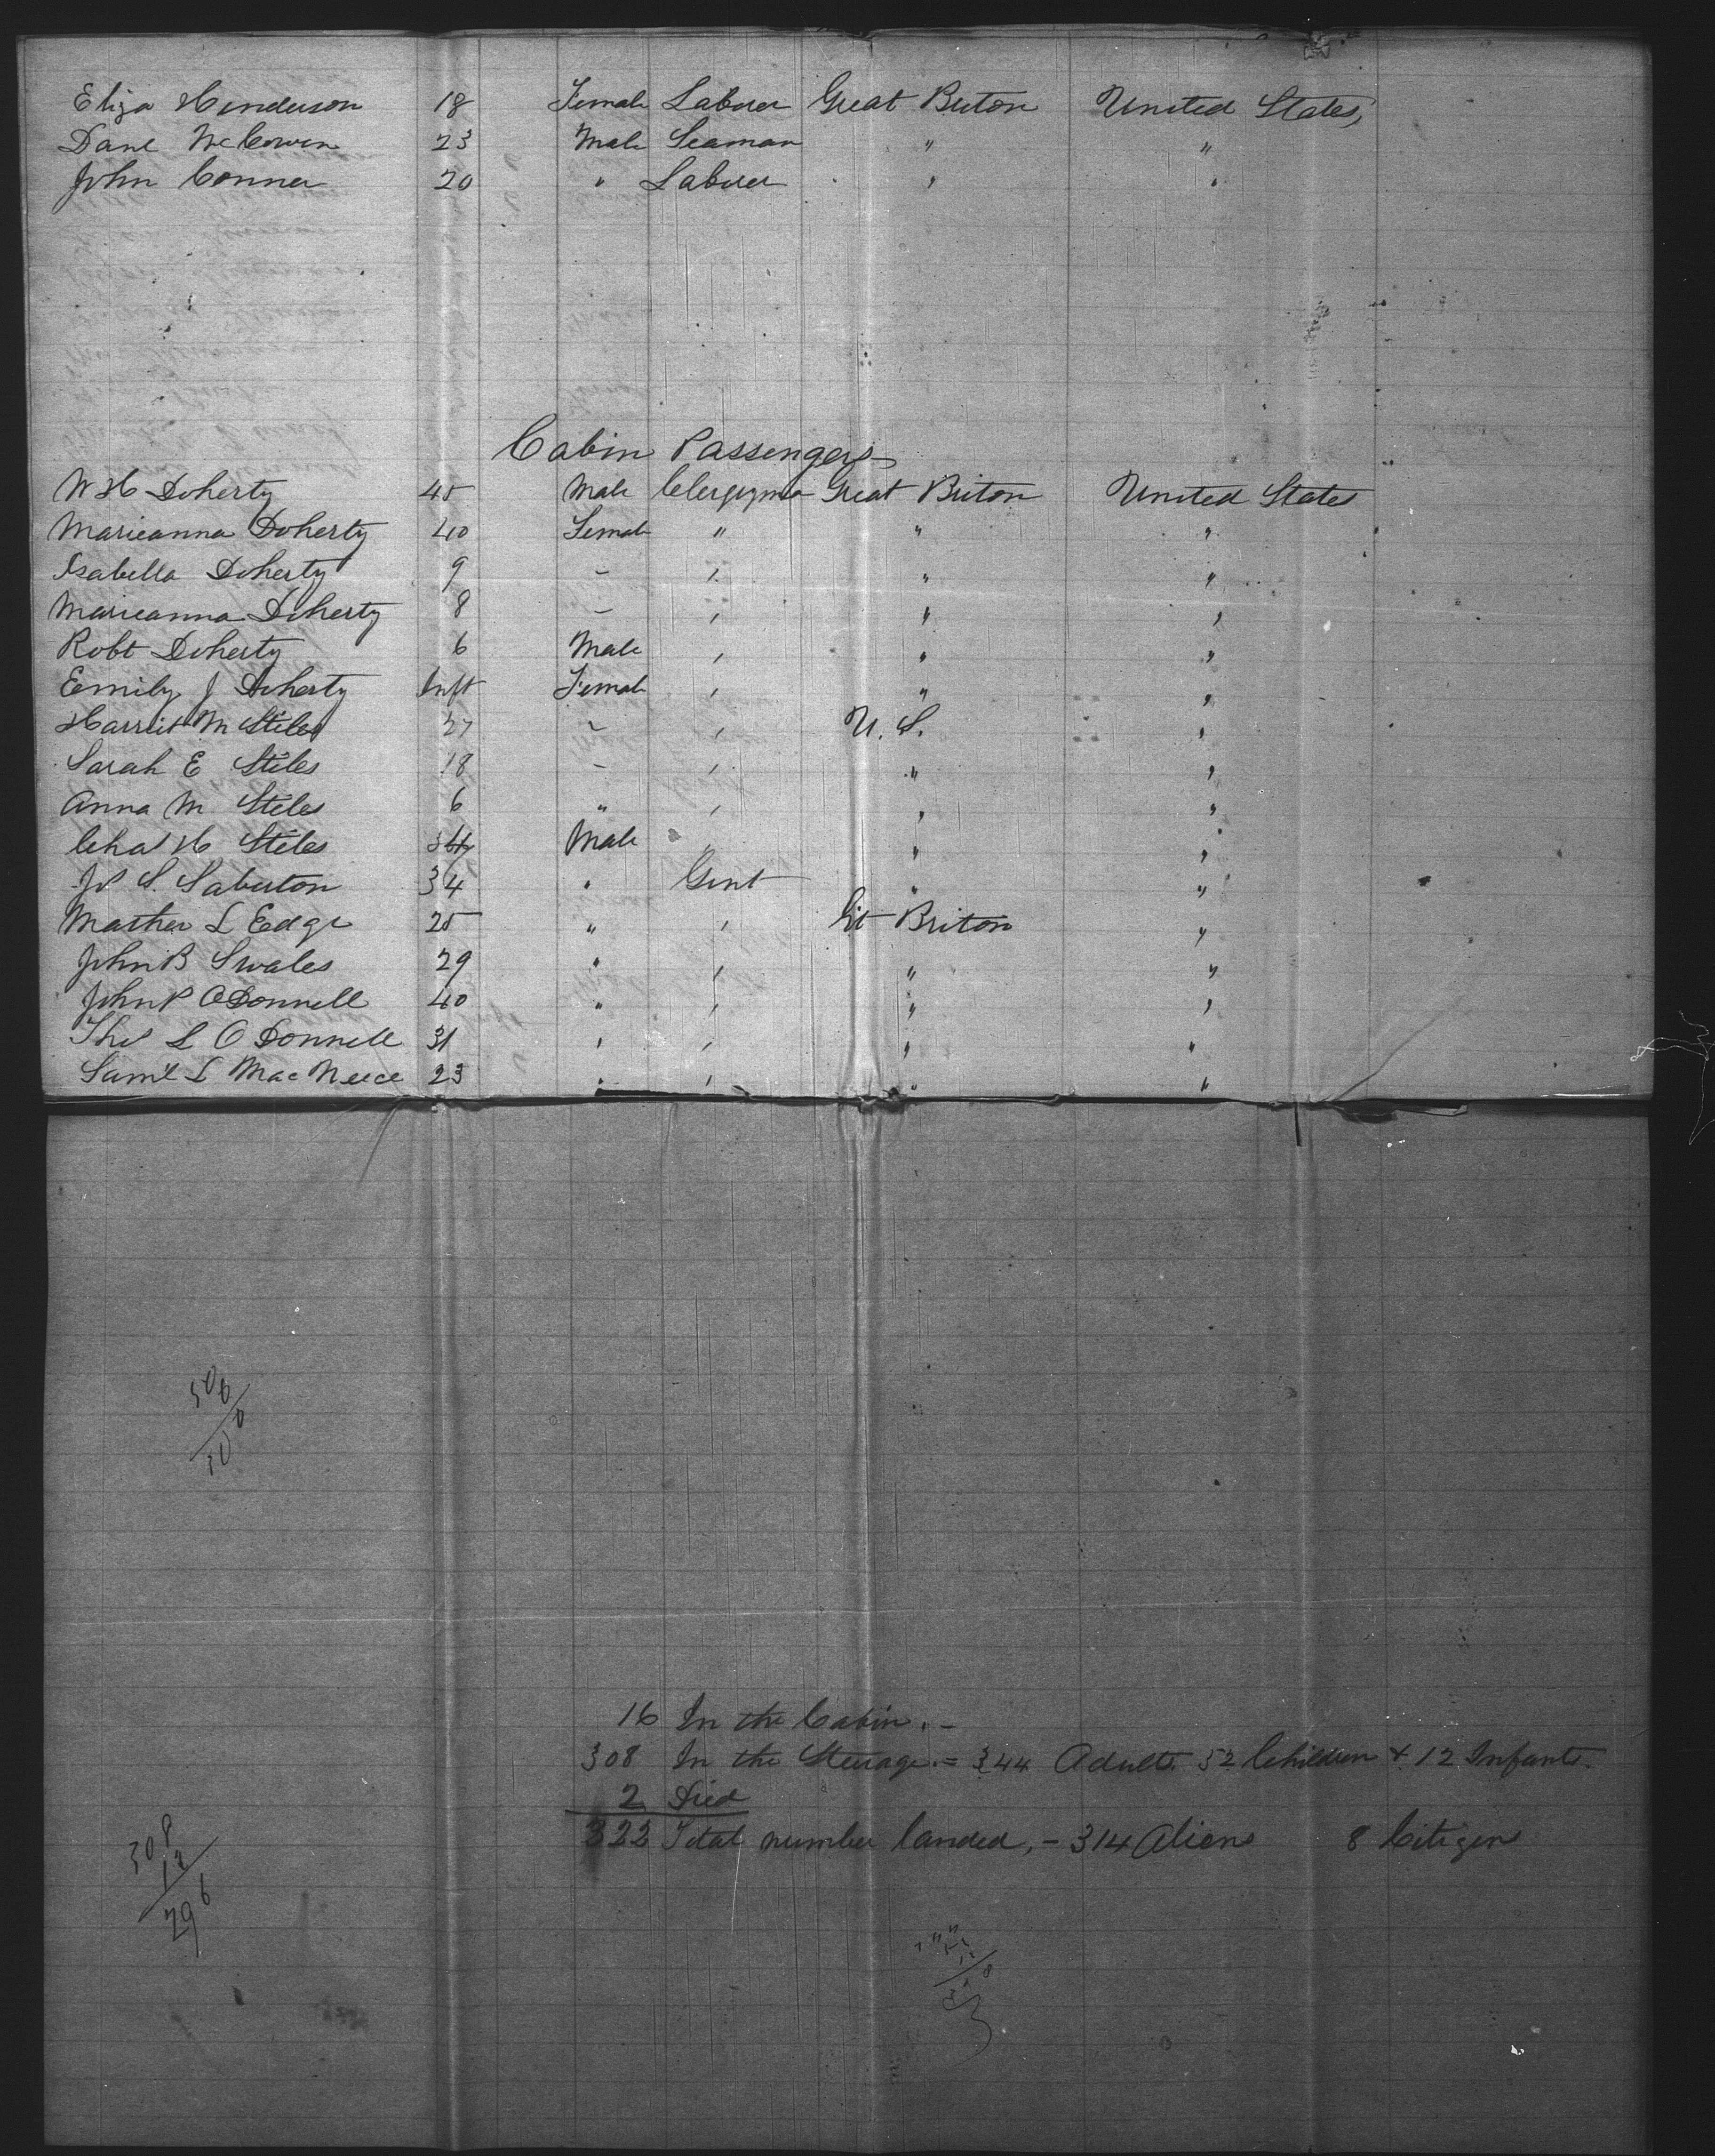 Eliza Henderson 18 Female Laborer Great Briton United States,
Danl McCowen 23 Male Seaman " "
John Conner 20 " Laborer " "
Cabin Passengers
W H Doherty 45 Male Clergyma Great Briton United States
Marieanna Doherty 40 Female " " "
Isabella Doherty 9 " " " "
Marieanna Doherty 8 " " " "
Robt Doherty 6 Male " " "
Eemily J Doherty Inft Female " " "
Harriet M Stiles 27 " " U. S. "
Sarah E Stiles 18 " " " "
Anna M Stiles 6 " " " "
Chas H Stiles Male " " "
S. Saburton 34 " Gent " "
L Edge 25 " " Gt Briton "
John B Swales 29 " " " "
John P ODonnell 40 " " " "
Thos L O Donnell 31 " " " "
Saml L MacNeece 23 " " " "
16 In the Cabin. -
308 In the Steerage. = 244 Adults. 52 Children + 12 Infants.
2 Died
322 Total number landed, - 314 Aliens 8 Citizens
308
12
296